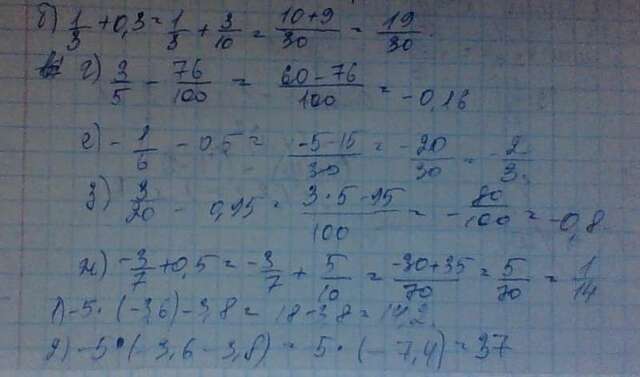 б) 1/3 + 0,3 = 1/3 + 3/10 = 10+9/30 = 19/30
г) 3/5 - 76/100 = 60-76/100 = -0,16
е) -1/6 - 0,5 = -5-15/30 = -20/30 = -2/3.
з) 3/20 - 0,95 = 3·5-95/100 = -80/100 = -0,8.
ж) -3/7 + 0,5 = -3/7 + 5/10 = -30+35/70 = 5/70 = 1/14
1) -5·(-3,6) - 3,8 = 18 - 3,8 = 14,2.
2) -5·(-3,6 - 3,8) = 5·(-7,4) = 37